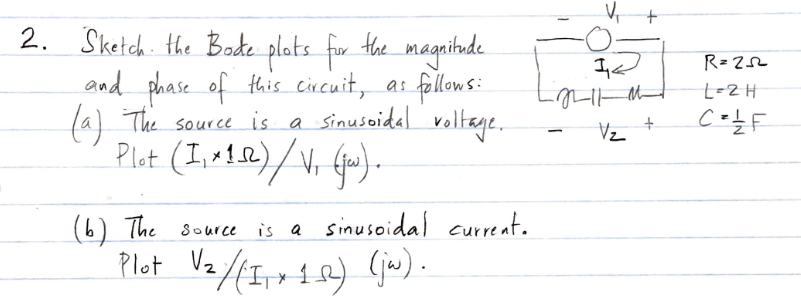 2. Sketch the Bode plots for the magnitude
and phase of this circuit, as follows:
(a) The source is a sinusoidal voltage.
Plot (I₁×1Ω)/V₁ (jω).
(b) The source is a sinusoidal current.
Plot V₂/(I₁ × 1Ω) (jω).
− V₁ +
I₁
− V₂ +
R=2Ω
L=2H
C=½F